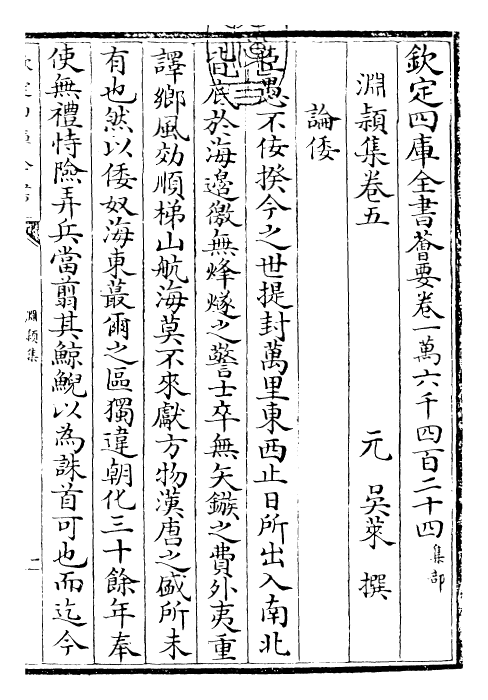 欽定四庫全書薈要卷一萬六千四百二十四集部
淵穎集卷五
元　吳萊　撰
論倭
臣愚不佞揆今之世提封萬里東西止日所出入南北
皆底於海邊徼無烽燧之警士卒無矢鏃之費外夷重
譯鄉風効順梯山航海莫不來獻方物漢唐之盛所未
有也然以倭奴海東蕞爾之區獨違朝化三十餘年奉
使無禮恃險弄兵當翦其鯨鯢以為誅首可也而迄今
淵穎集
一